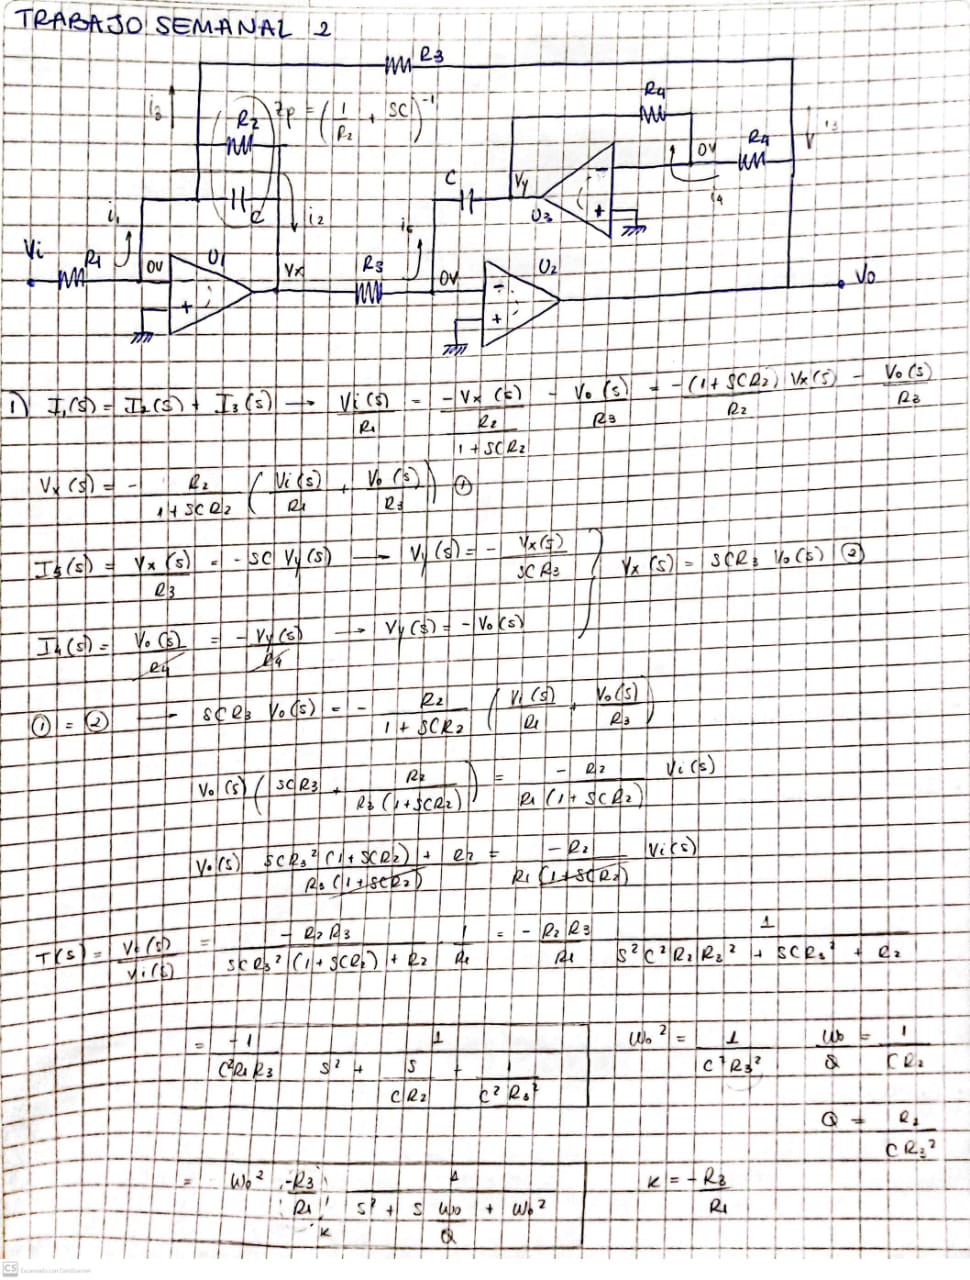 TRABAJO SEMANAL 2
R3
i3
R2
Zp = (1/R2 + SC)^-1
R4
R4
i3
0V
i4
C
Vy
U3
C
i1
i2
i5
Vi
R1
0V
U1
Vx
R3
0V
U2
Vo
1) I1(s) = I2(s) + I3(s) → Vi(s)/R1 = - Vx(s)/(R2/(1+SCR2)) - Vo(s)/R3 = -(1+SCR2) Vx(s)/R2 - Vo(s)/R3
Vx(s) = - R2/(1+SCR2) (Vi(s)/R1 + Vo(s)/R3) ①
I5(s) = Vx(s)/R3 = -SC Vy(s) → Vy(s) = - Vx(s)/(SCR3) } Vx(s) = SCR3 Vo(s) ②
I4(s) = Vo(s)/R4 = - Vy(s)/R4 → Vy(s) = -Vo(s)
① = ② → SCR3 Vo(s) = - R2/(1+SCR2) (Vi(s)/R1 + Vo(s)/R3)
Vo(s) (SCR3 + R2/(R3(1+SCR2))) = -R2/(R1(1+SCR2)) Vi(s)
Vo(s) (SCR3²(1+SCR2) + R2)/(R3(1+SCR2)) = -R2/(R1(1+SCR2)) Vi(s)
T(s) = Vo(s)/Vi(s) = -R2R3/(SCR3²(1+SCR2) + R2) 1/R1 = - R2R3/R1 1/(S²C²R2R3² + SCR3² + R2)
= -1/(C²R1R3) 1/(S² + S/(CR2) + 1/(C²R3²)) Wo² = 1/(C²R3²) Wo/Q = 1/(CR2)
Q = R2/(CR3²)
= Wo² (-R3/R1) K 1/(S² + S Wo/Q + Wo²) K = -R3/R1
CS Escaneado con CamScanner